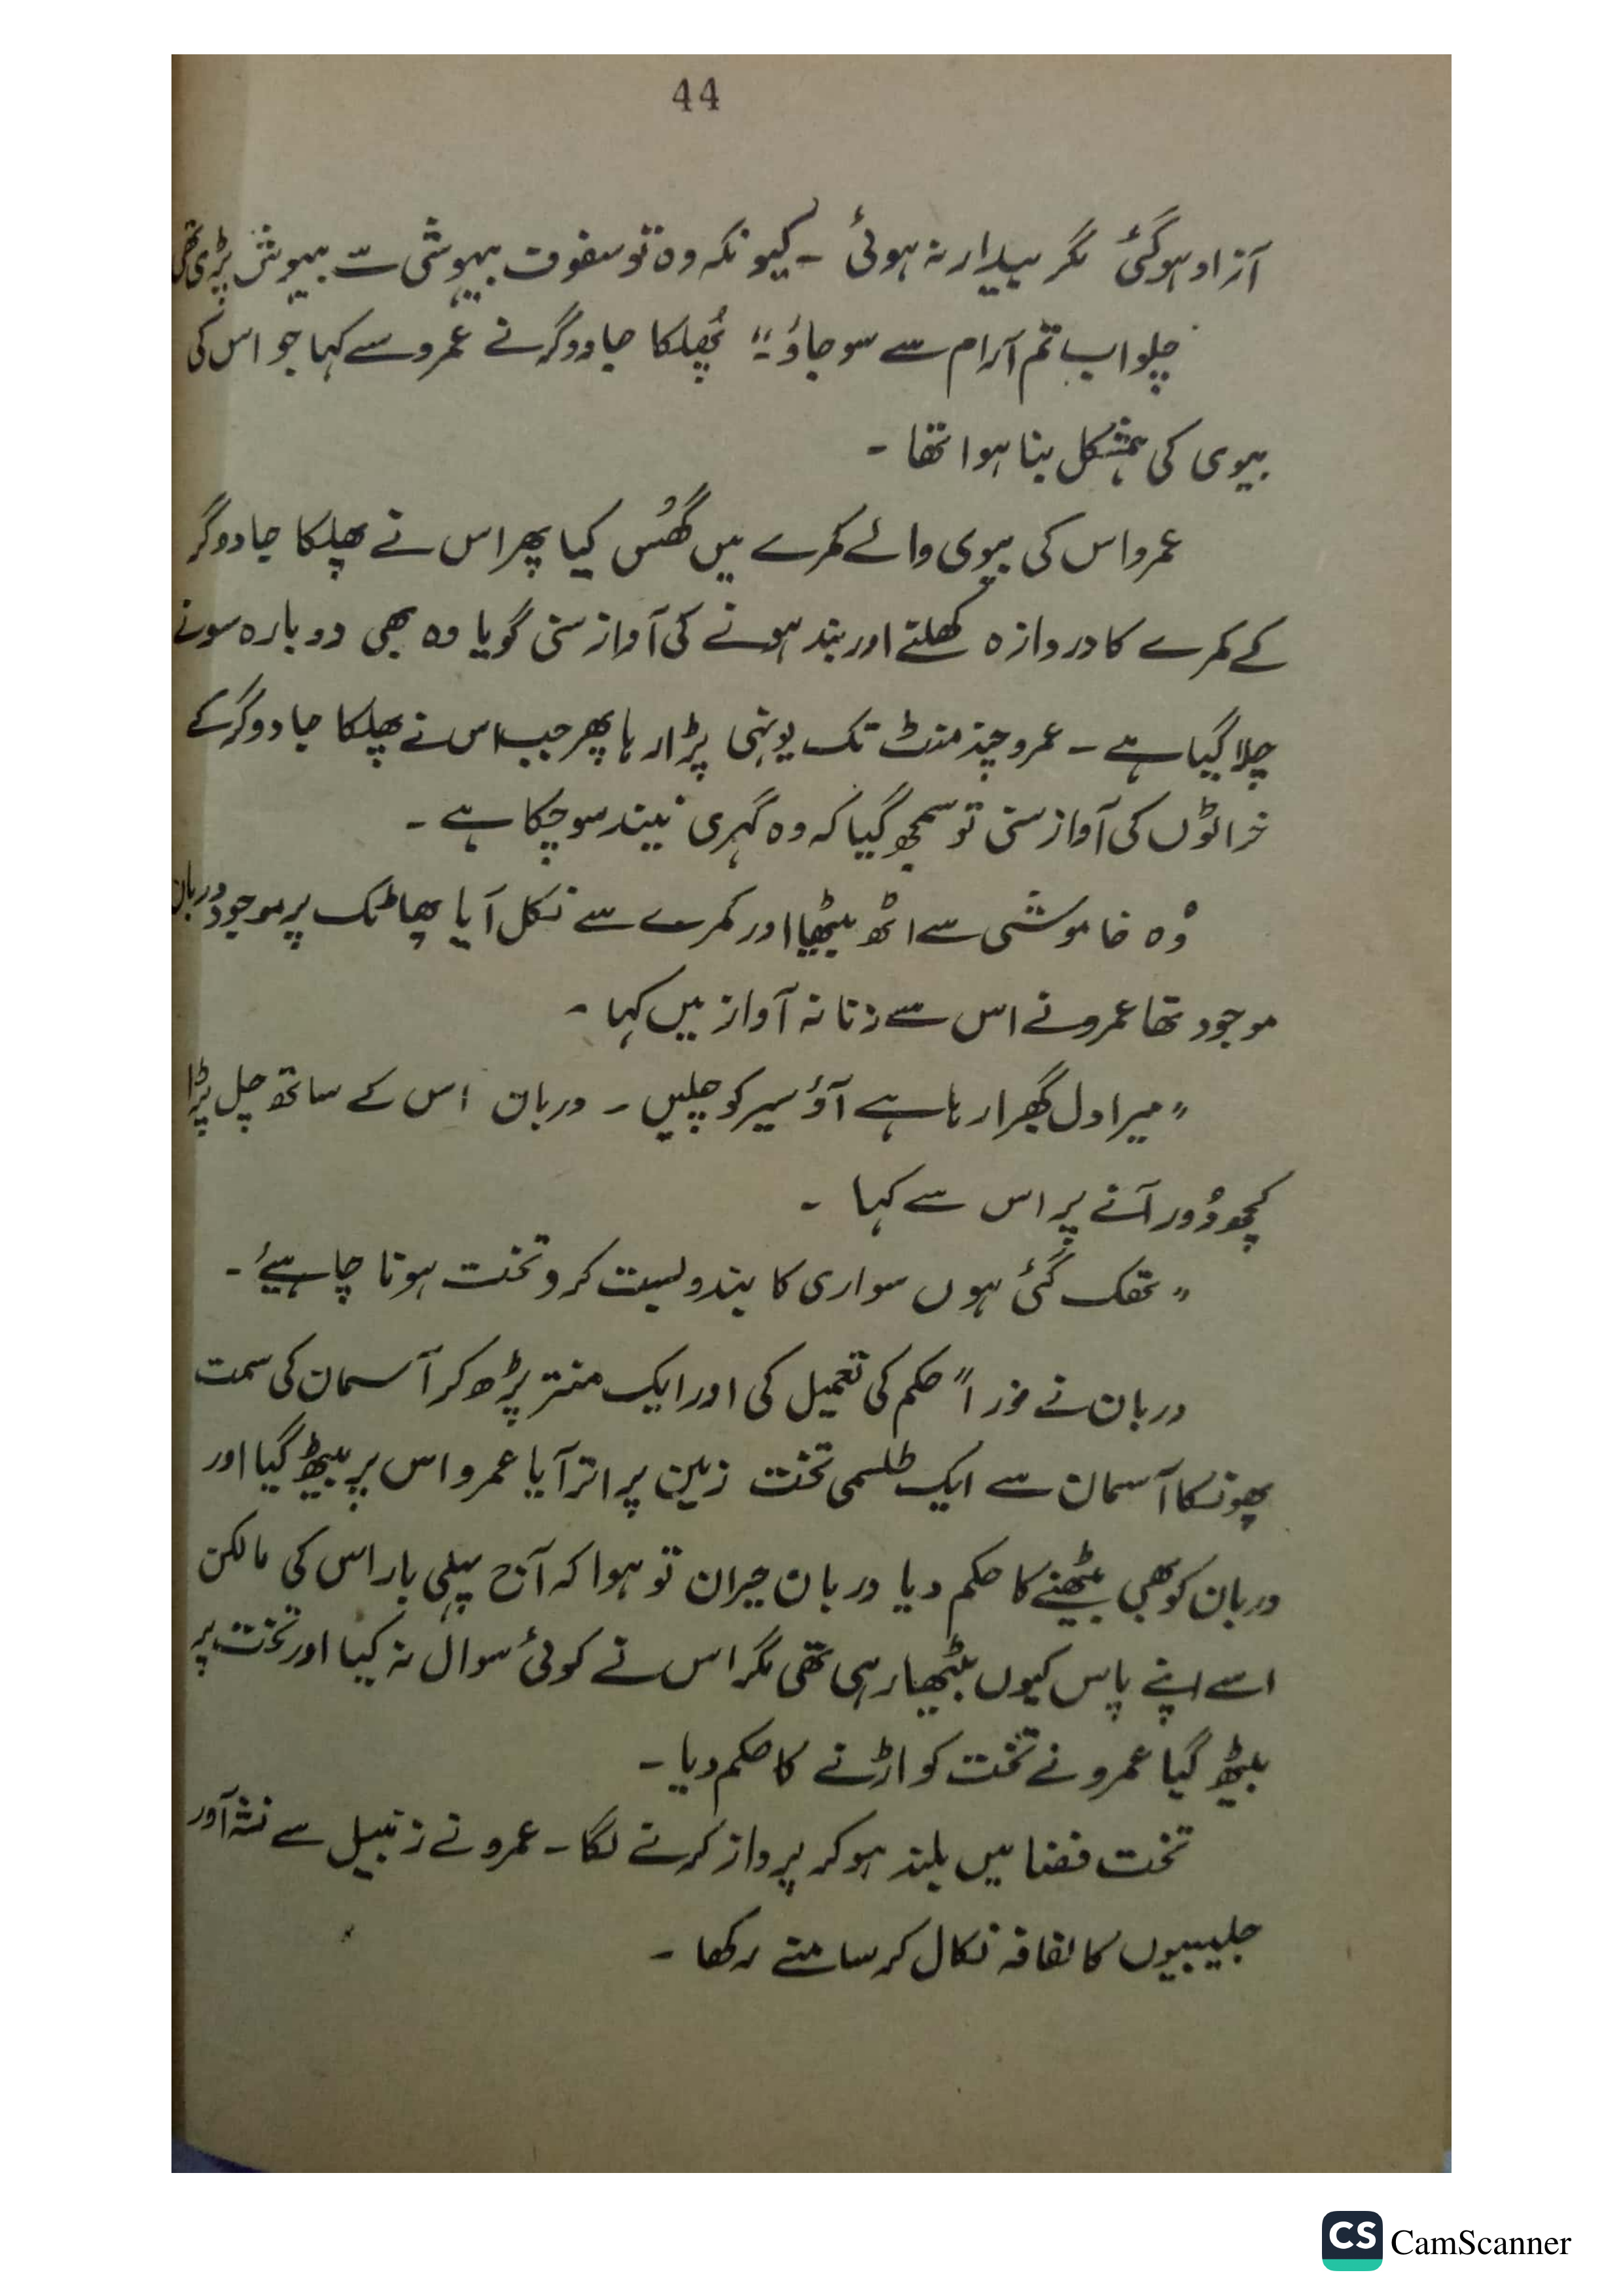 44
آزاد ہوگئی مگر بیدار نہ ہوئی ۔ کیونکہ وہ تو سفوف بیہوشی سے بیہوش پڑی تھی
چلو اب تم آرام سے سو جاؤ ۔" پُھلکا جادوگر نے عمرو سے کہا جو اس کی
بیوی کی ہمشکل بنا ہوا تھا ۔
عمرو اس کی بیوی والے کمرے میں گھُس گیا پھر اس نے پھلکا جادوگر
کے کمرے کا دروازہ کھلنے اور بند ہونے کی آواز سنی گویا وہ بھی دوبارہ سونے
چلا گیا ہے ۔ عمرو چند منٹ تک یونہی پڑا رہا پھر جب اس نے پھلکا جادوگر کے
خراٹوں کی آواز سنی تو سمجھ گیا کہ وہ گہری نیند سو چکا ہے ۔
وُہ خاموشی سے اٹھ بیٹھا اور کمرے سے نکل آیا پھاٹک پر موجود دربان
موجود تھا عمرو نے اس سے زنانہ آواز میں کہا ۔
" میرا دل گھبرا رہا ہے آؤ سیر کو چلیں ۔ دربان اس کے ساتھ چل پڑا
کچھ دُور آنے پر اس سے کہا ۔
" تھک گئی ہوں سواری کا بندوبست کرو تخت ہونا چاہیئے ۔
دربان نے فوراً حکم کی تعمیل کی اور ایک منتر پڑھ کر آسمان کی سمت
پھونکا آسمان سے ایک طلسمی تخت زمین پر اتر آیا عمرو اس پر بیٹھ گیا اور
دربان کو بھی بیٹھنے کا حکم دیا دربان حیران تو ہوا کہ آج پہلی بار اس کی مالکن
اسے اپنے پاس کیوں بٹھا رہی تھی مگر اس نے کوئی سوال نہ کیا اور تخت پر
بیٹھ گیا عمرو نے تخت کو اڑنے کا حکم دیا ۔
تخت فضا میں بلند ہو کر پرواز کرنے لگا ۔ عمرو نے زنبیل سے نشہ آور
جلیبیوں کا لفافہ نکال کر سامنے رکھا ۔
CS CamScanner